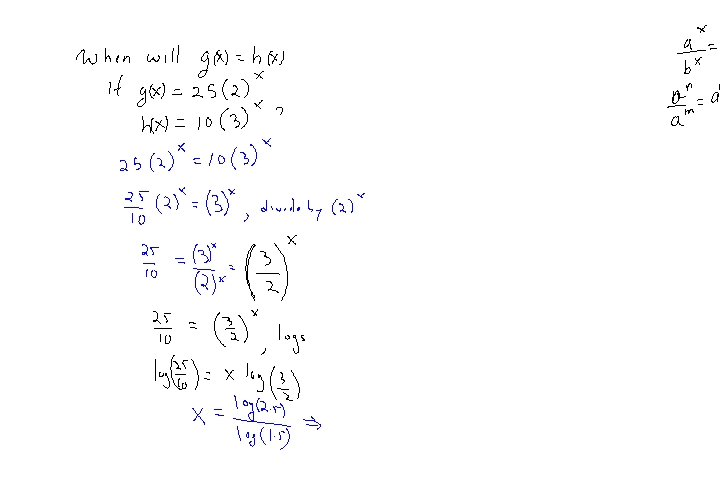 When will g(x) = h(x)
If g(x) = 25(2)^x
h(x) = 10(3)^x ?
25(2)^x = 10(3)^x
25/10 (2)^x = (3)^x, divide by (2)^x
25/10 = (3)^x/(2)^x = (3/2)^x
25/10 = (3/2)^x, logs
log(25/10) = x log(3/2)
x = log(2.5)/log(1.5) ⇒
a^x/b^x =
a^n/a^m = a